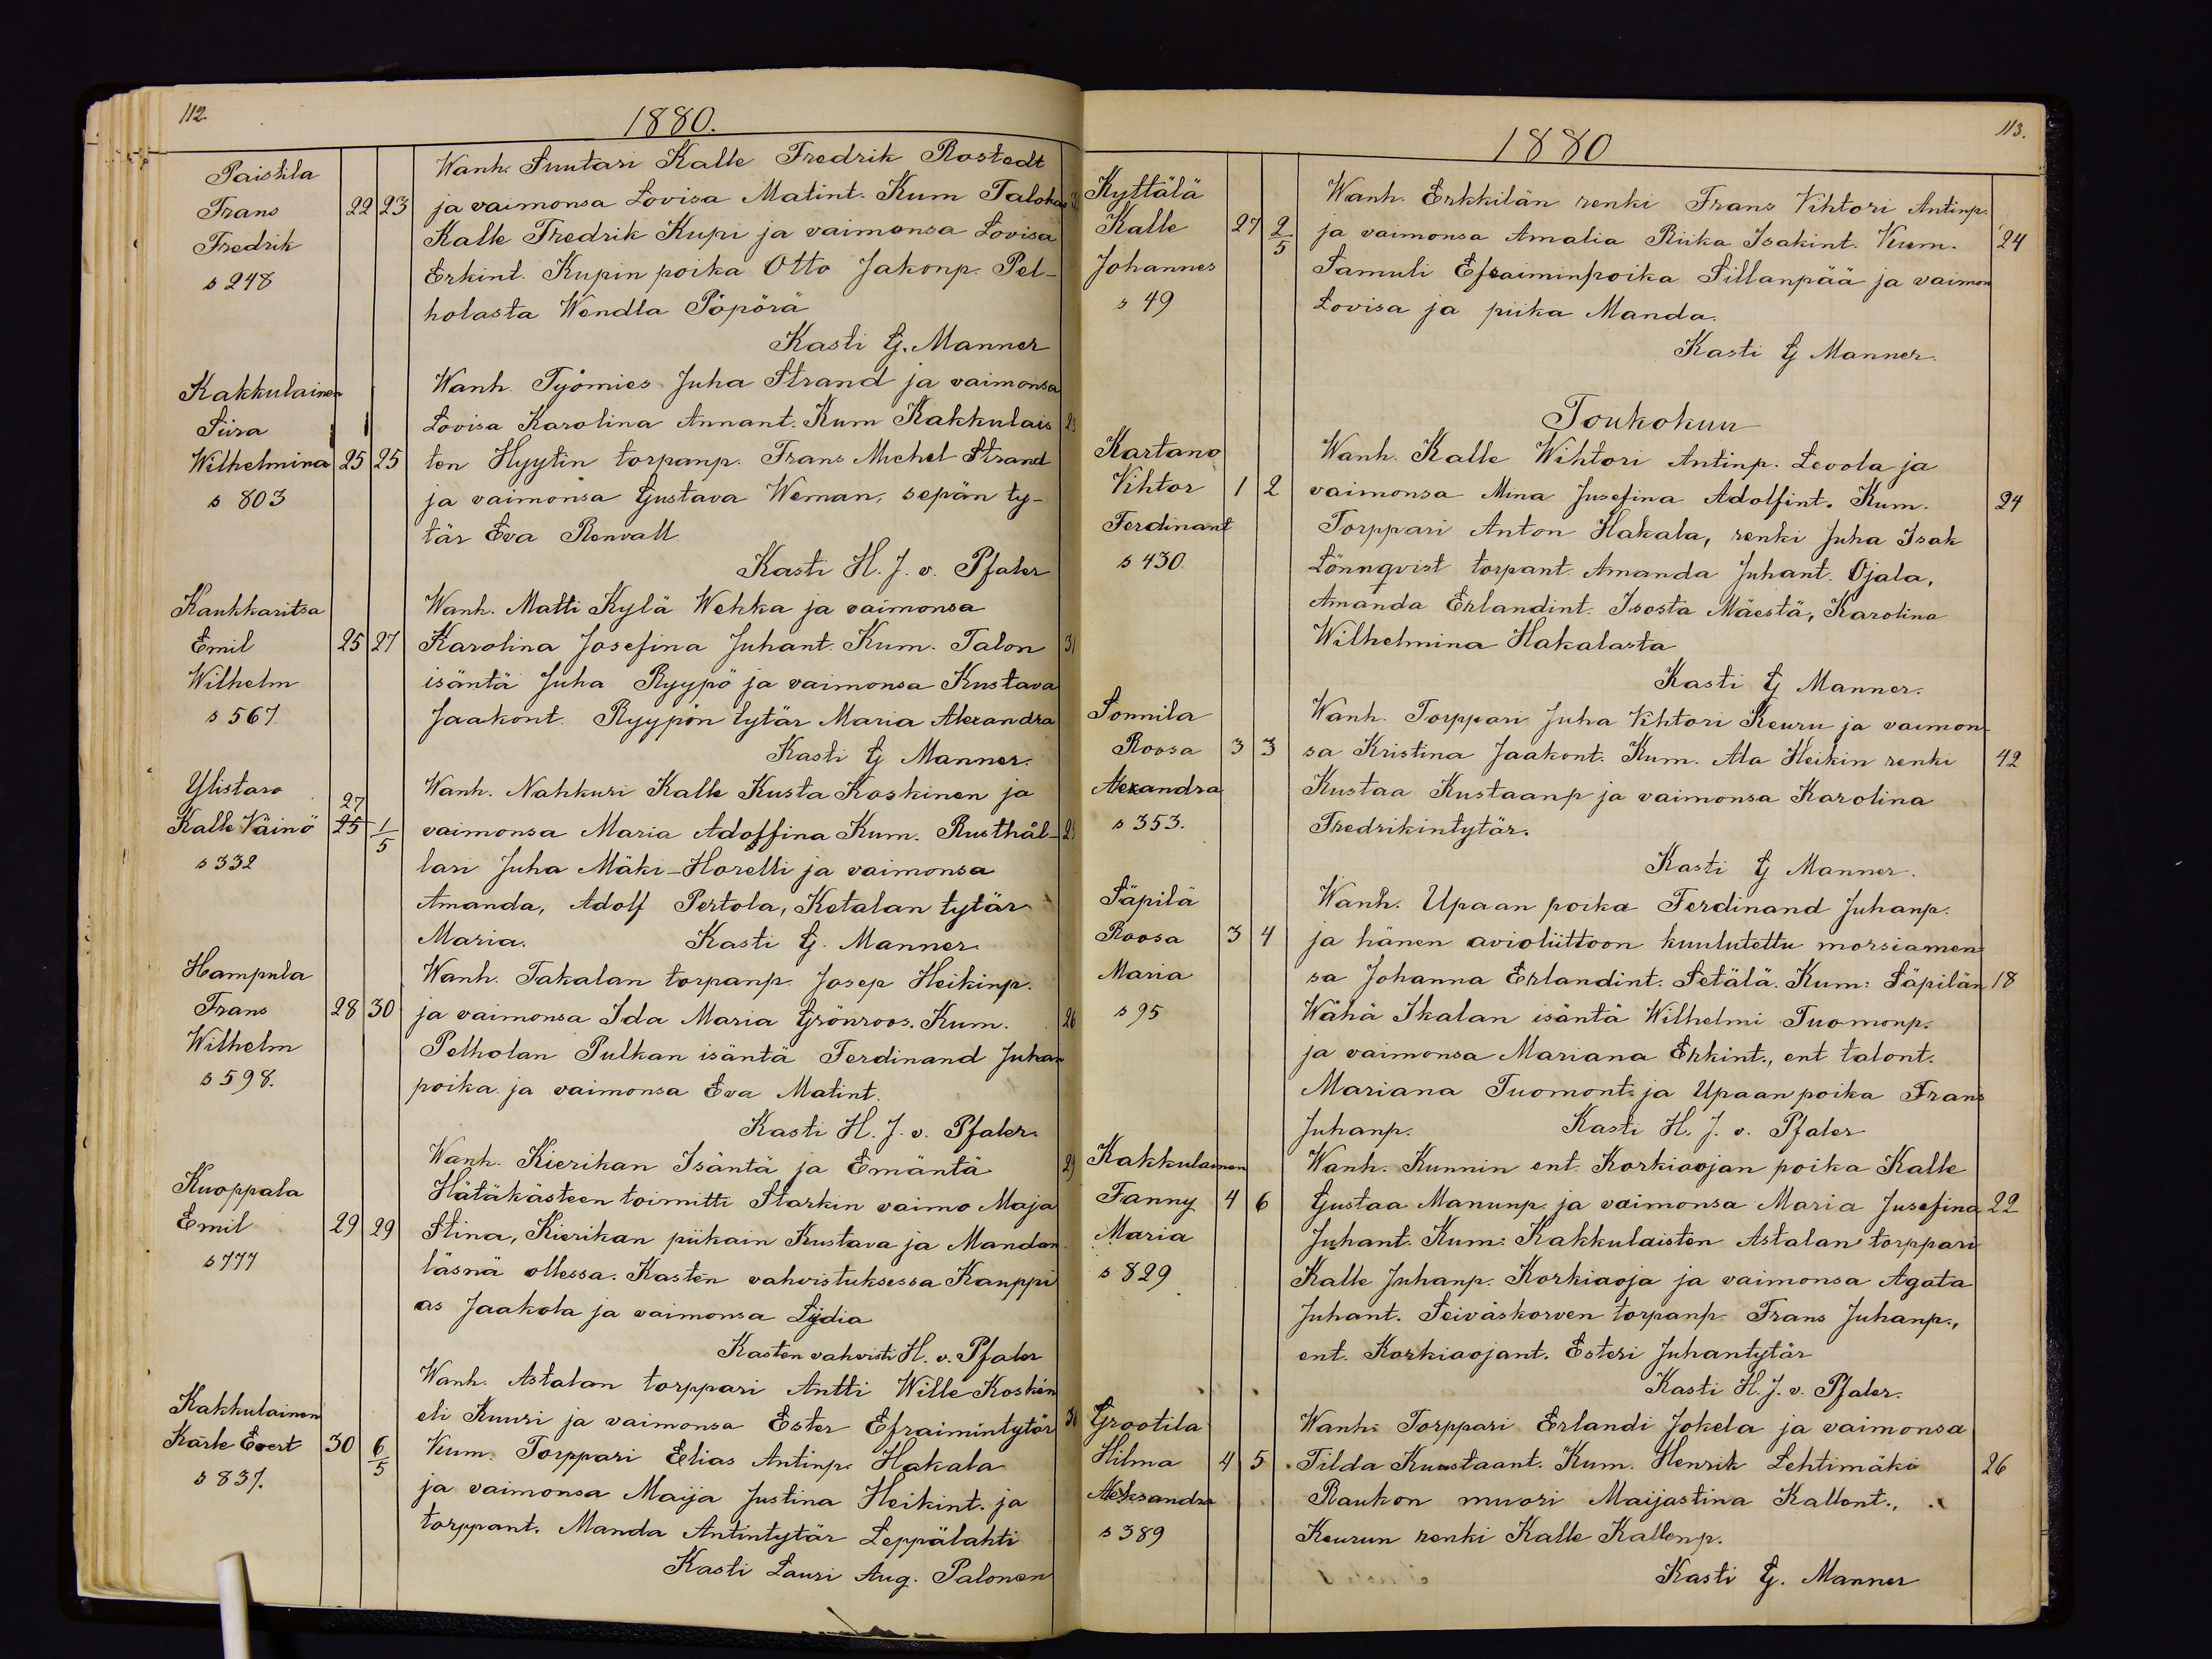 112.
1880.
Paistila Wanh. Suutari Kalle Fredrik Rostedt
Frans 22 23 ja vaimonsa Lovisa Matint. Kum Talokas
Fredrik Kalle Fredrik Kupi ja vaimonsa Lovisa
s 248 Erkint. Kupin poika Otto Jakonp. Pel-
holasta Wendla Pöpörä
Kasti G. Manner
Kakkulainen Wanh. Työmies Juha Strand ja vaimonsa
Siira Lovisa Karolina Annant. Kum Kakkulais
Wilhelmina 25 25 ten Hyytin torpanp. Frans Michel Strand
s 803 ja vaimonsa Gustava Weman, sepän ty-
tär Eva Renvall
Kasti H. J. v. Pfaler
Kaukkaritsa Wanh. Matti Kylä Wehka ja vaimonsa
Emil 25 27 Karolina Josefina Juhant. Kum. Talon 31
Wilhelm isäntä Juha Ryypö ja vaimonsa Kustava
s 567. Jaakont. Ryypön tytär Maria Alexandra
Kasti G Manner.
Ylistaro Wanh. Nahkuri Kalle Kusta Koskinen ja
27
Kalle Väinö 25 1/5 vaimonsa Maria Adolfina Kum. Rusthål-
s 332 lari Juha Mäki-Horelli ja vaimonsa
Amanda, Adolf Pertola, Ketalan tytär
Maria. Kasti G. Manner
Hampula Wanh. Takalan torpanp. Josep Heikinp.
Frans 28 30 ja vaimonsa Ida Maria Grönroos. Kum. 26
Wilhelm Pelholan Pulkan isäntä Ferdinand Juhan
s 598. poika ja vaimonsa Eva Matint.
Kasti H. J. v. Pfaler.
Wanh. Kierikan Isäntä ja Emäntä 29
Kuoppala Hätäkasteen toimitti Starkin vaimo Maja
Emil 29 29 Stina, Kierikan piikain Kustava ja Mandan
s 777 läsnä ollessa. Kasten vahvistuksessa Kanppi
as Jaakola ja vaimonsa Lydia
Kasten vahvisti H. v. Pfaler
Wanh. Astalan torppari Antti Wille Koskin
Kakkulainen eli Kuuri ja vaimonsa Ester Efraimintytär
Karle Evert 30 6/5 Kum. Torppari Elias Antinp. Hakala
s 837. ja vaimonsa Maija Justina Heikint. ja
torppant. Manda Antintytär Leppälahti
Kasti Lauri Aug. Palonen
113.
1880
Kyttälä Wanh. Erkkilän renki Frans Vihtori Antinp.
Kalle 27 2/5 ja vaimonsa Amalia Riika Isakint. Kum. 24
Johannes Samuli Efraiminpoika Sillanpää ja vaimon
s 49 Lovisa ja piika Manda.
Kasti G Manner.
Toukokuu
Kartano Wanh. Kalle Wihtori Antinp. Levola ja
Vihtor 1 2 vaimonsa Mina Jusefina Adolfint. Kum. 24
Ferdinant Torppari Anton Hakala, renki Juha Isak
s 430. Lönnqvist torpant. Amanda Juhant. Ojala,
Amanda Erlandint. Isosta Mäestä, Karolina
Wilhelmina Hakalasta
Kasti G Manner.
Sonnila Wanh. Torppari Juha Vihtori Keuru ja vaimon-
Roosa 3 3 sa Kristina Jaakont. Kum. Ala Heikin renki 42
Alexandra Kustaa Kustaanp ja vaimonsa Karolina
s 353. Fredrikintytär.
Kasti G Manner.
Säpilä Wanh. Upaan poika Ferdinand Juhanp.
Roosa 3 4 ja hänen avioliittoon kuulutettu morsiamen-
Maria sa Johanna Erlandint. Setälä. Kum: Säpilän 18
s 95 Wähä Ikalan isäntä Wilhelmi Tuomonp.
ja vaimonsa Mariana Erkint., ent talont.
Mariana Tuomont. ja Upaan poika Frans
Juhanp. Kasti H. J. v. Pfaler
Kakkulainen Wanh. Kunnin ent. Korkiaojan poika Kalle
Fanny 4 6 Gustaa Manunp. ja vaimonsa Maria Jusefina 22
Maria Juhant. Kum: Kakkulaisten Astalan torppari
s 829 Kalle Juhanp. Korkiaoja ja vaimonsa Agata
Juhant. Seiväskorven torpanp. Frans Juhanp.,
ent. Korkiaojant. Esteri Juhantytär
Kasti H. J. v. Pfaler.
Grootila Wanh. Torppari Erlandi Jokela ja vaimonsa
Hilma 4 5 Tilda Kustaant. Kum. Henrik Lehtimäki 26
Aleksandra Raukon muori Maijastina Kallont.,
s 389 Keurun renki Kalle Kallenp.
Kasti G. Manner